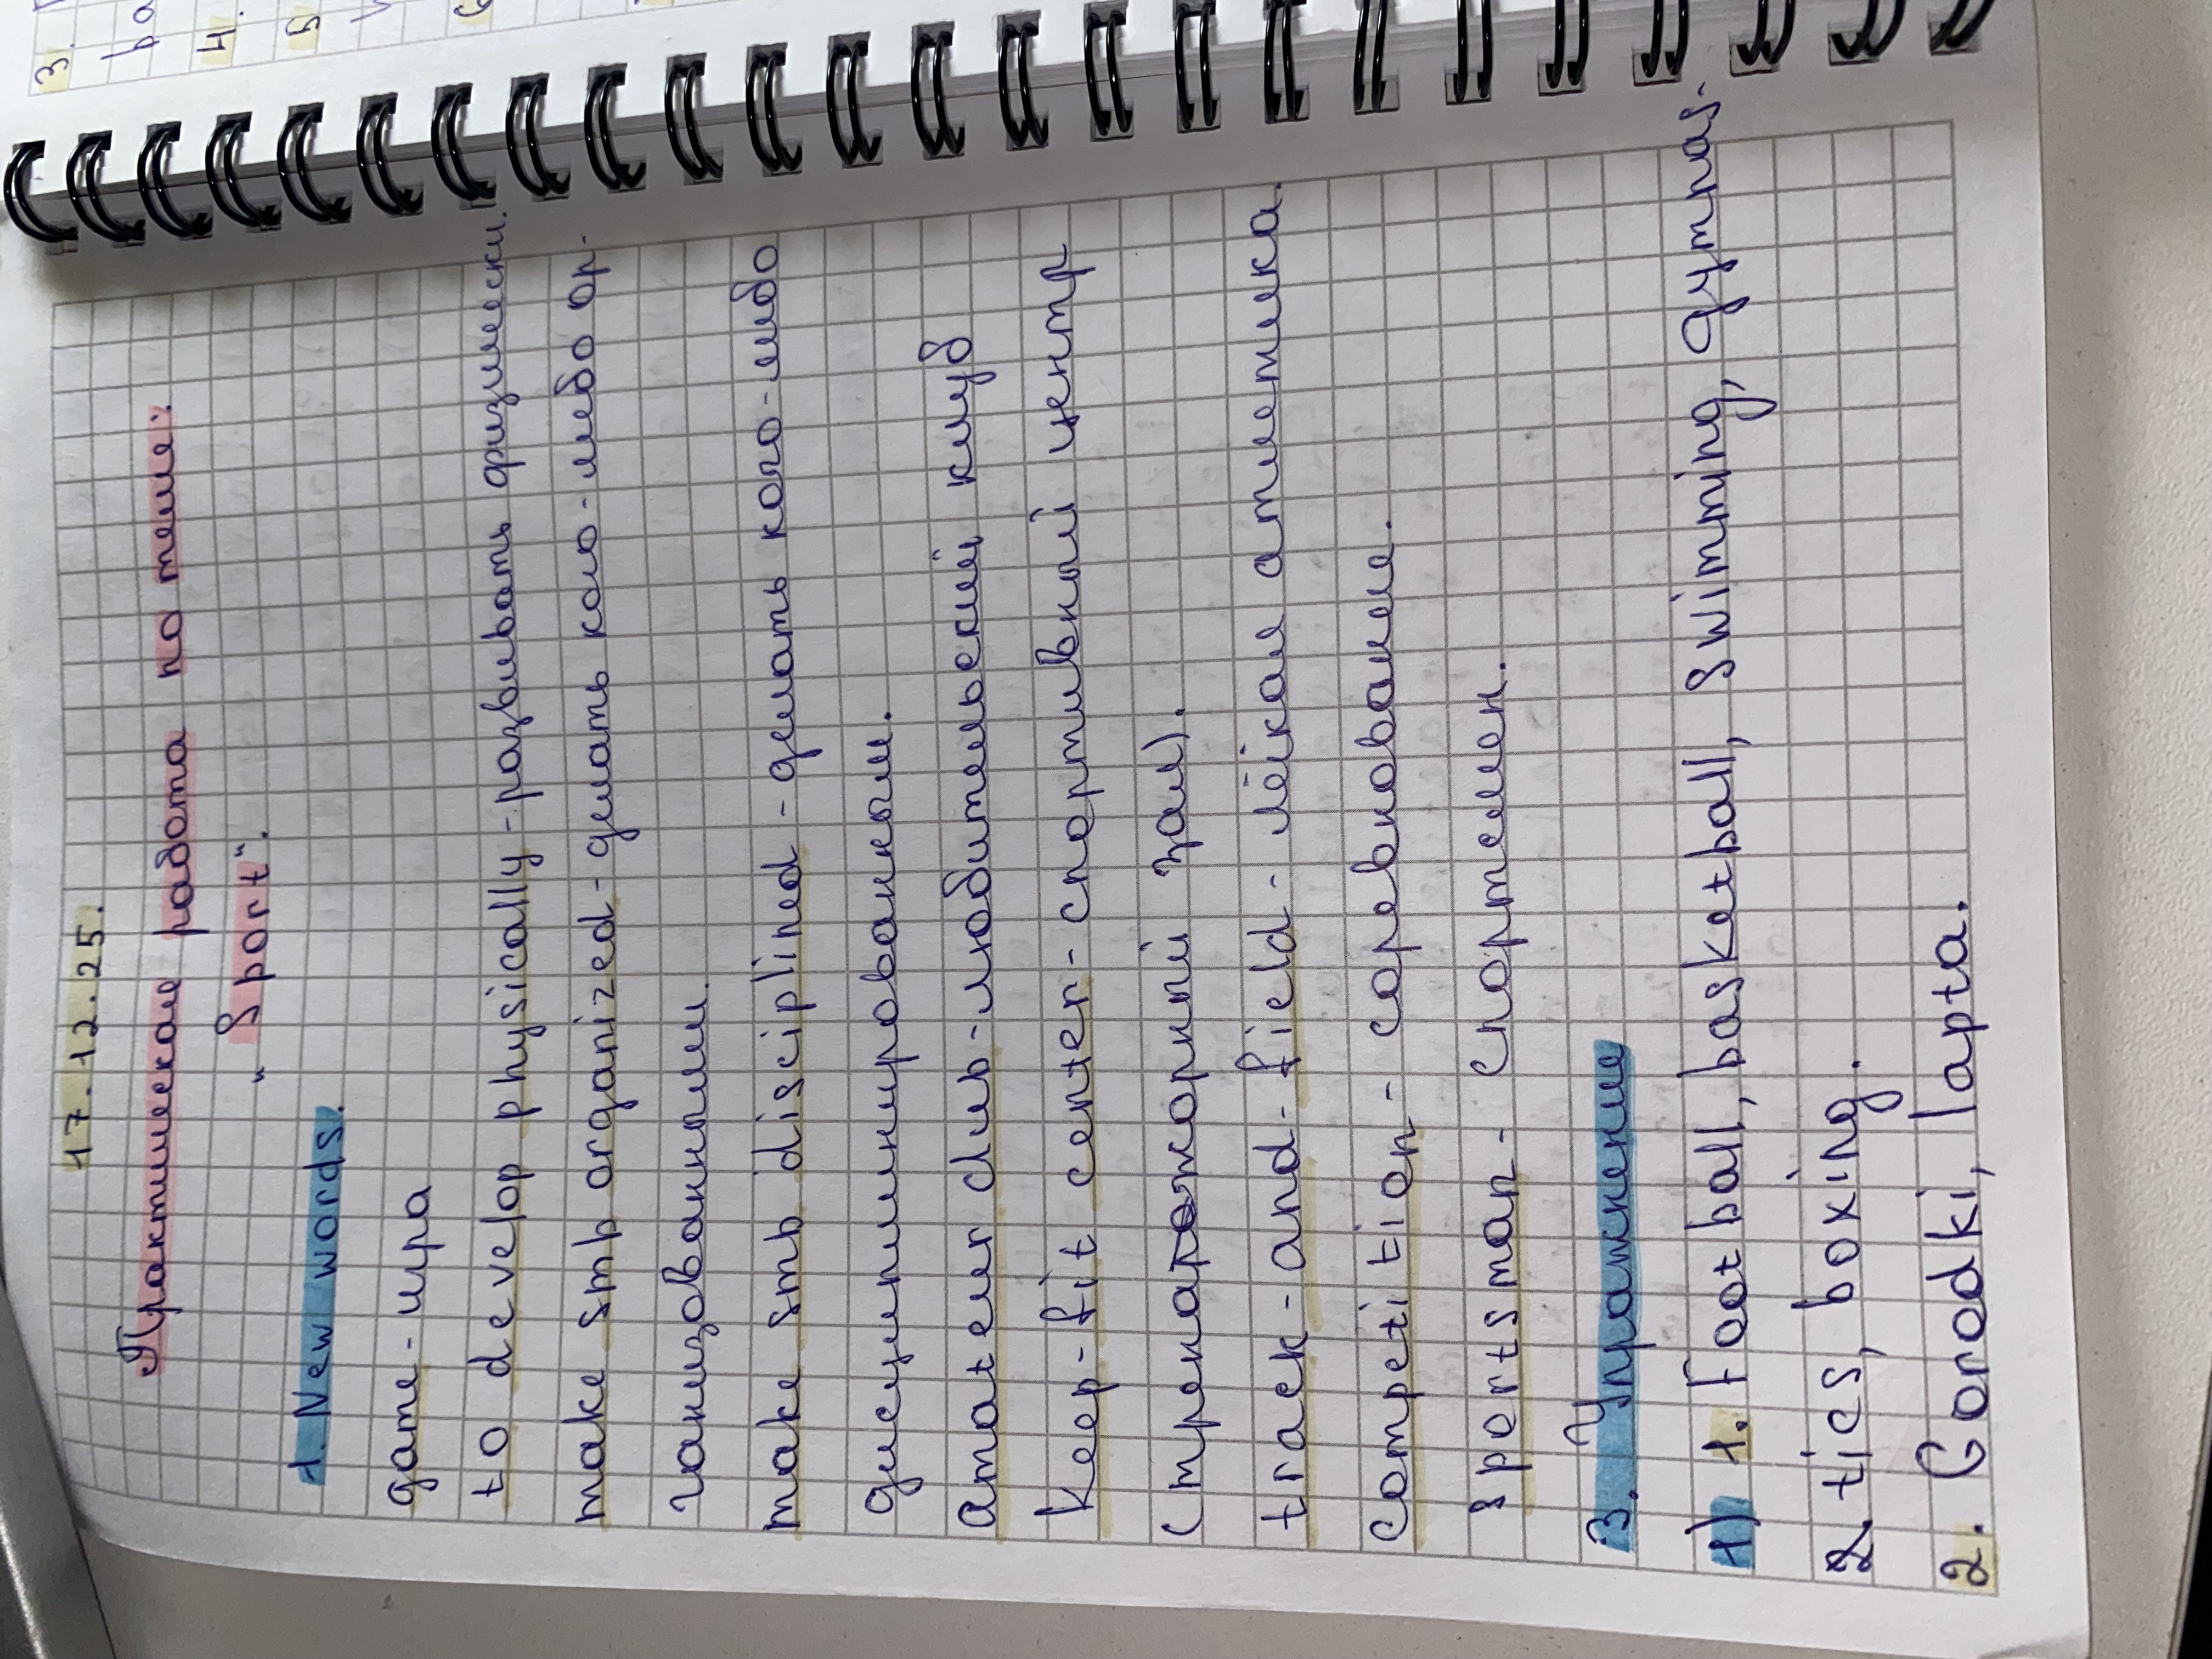 17.12.25.
Практическая работа по теме:
"Sport".
1. New words.
game - игра
to develop physically - развивать физически.
make smb organized - делать кого-либо ор-
ганизованным.
make smb disciplined - делать кого-либо
дисциплинированным.
amateur club - любительский клуб
keep-fit center - спортивный центр
(тренажорный зал).
track-and-field - лёгкая атлетика.
competition - соревнование.
sportsman - спортсмен.
3. Упражнение
1) 1. Football, basketball, swimming, gymnas-
tics, boxing.
2. Gorodki, lapta.
3.
ba
4.
5